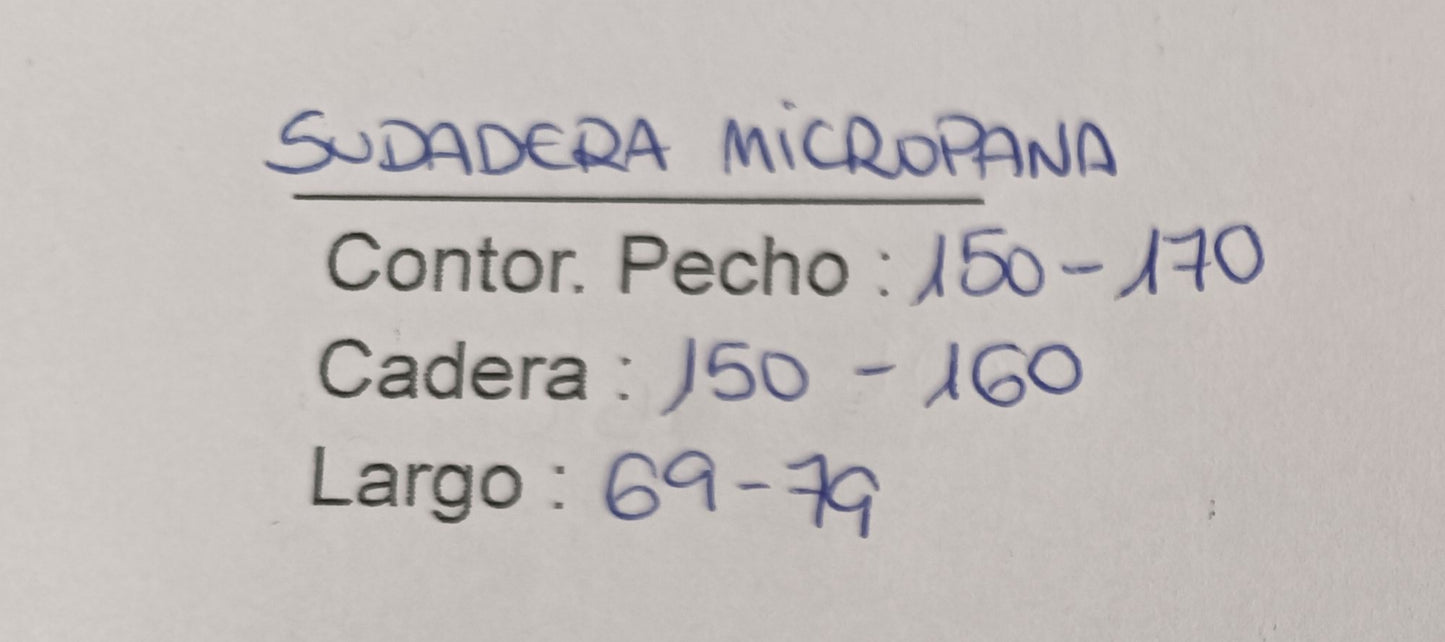 SUDADERA MiCROPANA
Contor. Pecho : 150 - 170
Cadera : 150 - 160
Largo : 69 - 79